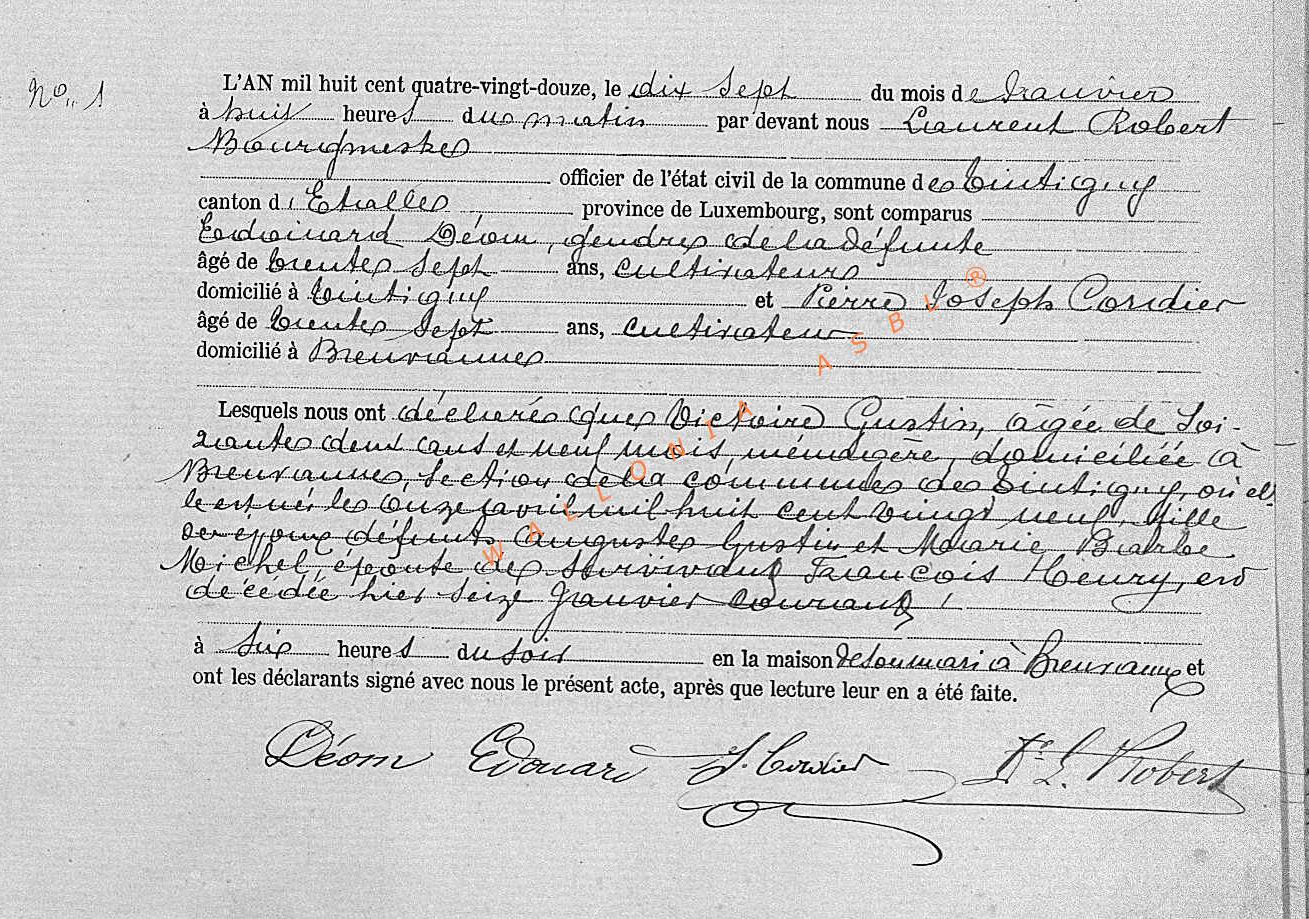 No. 1
L'AN mil huit cent quatre-vingt-douze, le dix sept du mois de Janvier
à huit heures du matin par devant nous Laurent Robert
Bourgmestre
officier de l'état civil de la commune de Tintigny
canton d'Etalle province de Luxembourg, sont comparus
Edouard Déom, gendre de la défunte
âgé de trente sept ans, cultivateur
domicilié à Tintigny et Pierre Joseph Cordier
âgé de trente sept ans, cultivateur
domicilié à Breuvanne
Lesquels nous ont déclaré que Victoire Gustin, agée de soi-
xante deux ans et neuf mois, ménagère, domiciliée à
Breuvanne, section de la commune de Tintigny, où el
le est né le onze avril mil huit cent vingt neuf, fille
des époux défunts Auguste Gustin et Marie Barbe
Michel, épouse de survivant François Henry, est
décédée hier seize Janvier courant
à six heures du soir en la maison de son mari à Breuvanne et
ont les déclarants signé avec nous le présent acte, après que lecture leur en a été faite.
Déom Edouard J. Cordier L. Robert
WALLONIA ASBL ®